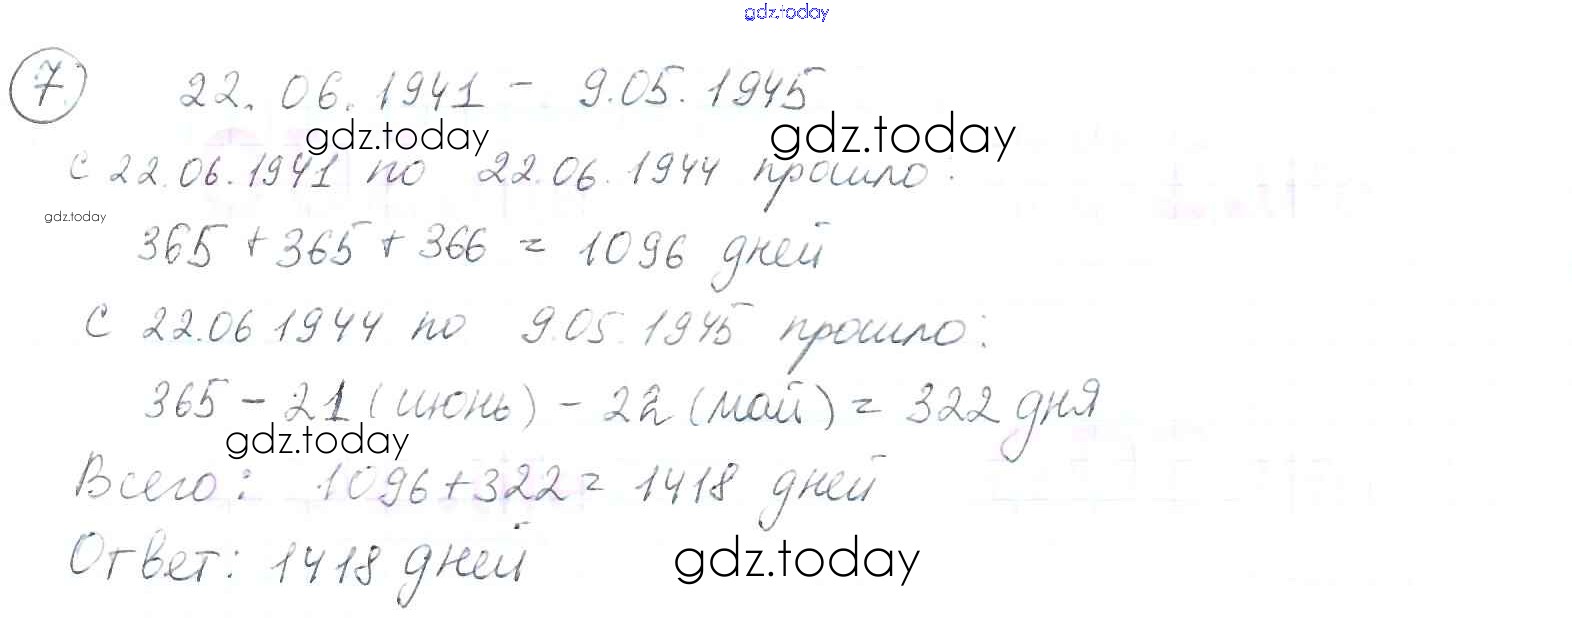 gdz.today
7 22.06.1941 - 9.05.1945
gdz.today gdz.today
с 22.06.1941 по 22.06.1944 прошло:
gdz.today
365 + 365 + 366 = 1096 дней
С 22.06 1944 по 9.05.1945 прошло:
365 - 21 (июнь) - 22 (май) = 322 дня
gdz.today
Всего: 1096+322= 1418 дней
Ответ: 1418 дней
gdz.today